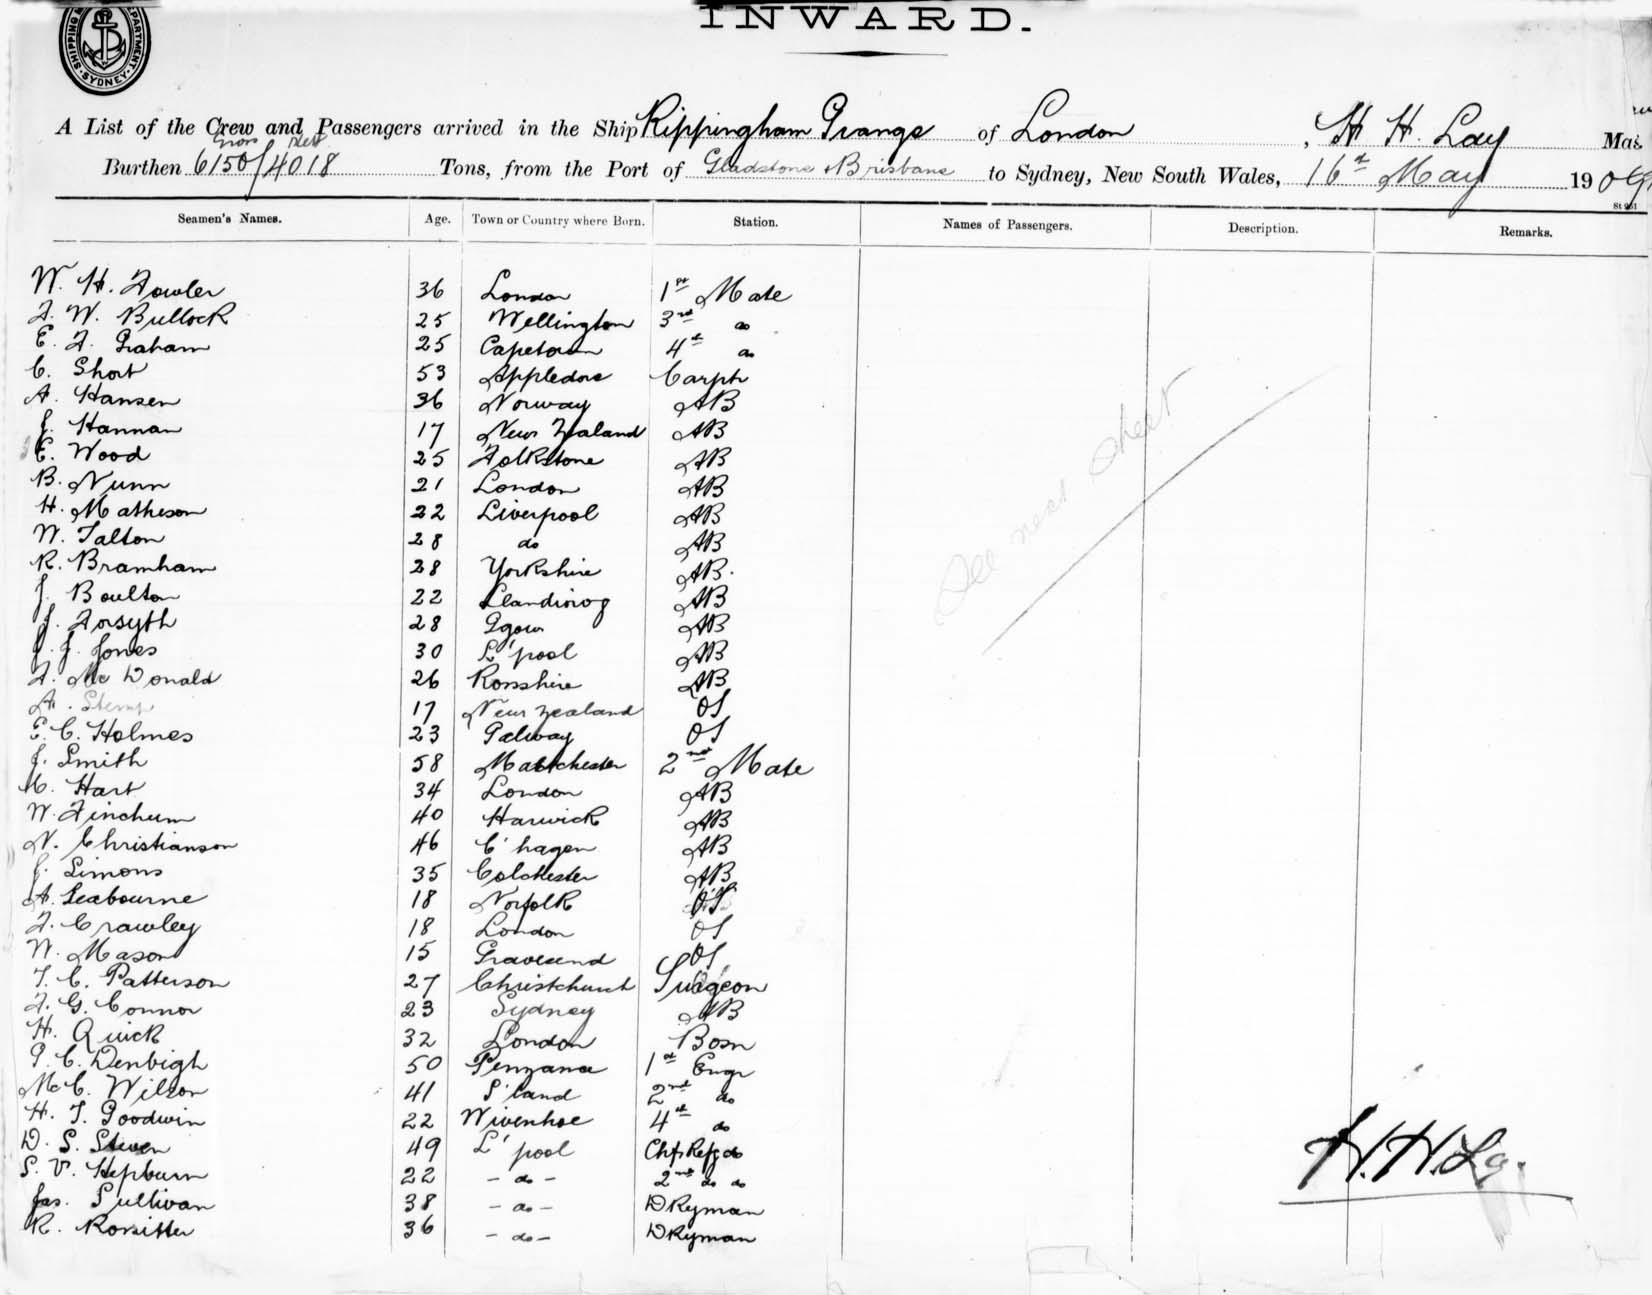 INWARD.
SHIPPING DEPARTMENT SYDNEY
A List of the Crew and Passengers arrived in the Ship Rippingham Grange of London , H H. Lay Mas
Gross Nett
Burthen 6150/4018 Tons, from the Port of Gladstone & Brisbane to Sydney, New South Wales, 16th May 1909
St 951
Seamen's Names. Age. Town or Country where Born. Station. Names of Passengers. Description. Remarks.
W. H. Fowler 36 London 1st Mate
F. W. Bullock 25 Wellington 3rd do
E. F. Graham 25 Capetown 4th do
C. Short 53 Appledore Carptr
A. Hansen 36 Norway AB
J. Hannan 17 New Zealand AB
E. Wood 25 Folkstone AB
B. Nunn 21 London AB
H. Matheson 22 Liverpool AB
W. Talton 28 do AB
R. Bramham 28 Yorkshire AB.
J. Boulton 22 AB
J. Forsyth 28 Ggow AB
J. J. Jones 30 L'pool AB
F. McDonald 26 Rossshire AB
A. Stemp 17 New Zealand OS
E. C. Holmes 23 Galway OS
J. Smith 58 Manchester 2nd Mate
C. Hart 34 London AB
W. Fincham 40 Harwick AB
N. Christianson 46 C'hagen AB
J. Simons 35 Colchester AB
A. Seabourne 18 Norfolk OS
F. Crawley 18 London OS
W. Mason 15 Gravesend OS
T. C. Patterson 27 Christchurch Surgeon
F. G. Connor 23 Sydney AB
H. Quick 32 London Bosn
P. C. Denbigh 50 Penzance 1st Engr
Mc C. Wilson 41 S'land 2nd do
H. T. Goodwin 22 Wivenhoe 4th do
D. S. Steven 49 L'pool Chf Refg do
S. V. Hepburn 22 - do - 2nd do do
Jas. Sullivan 38 - do - DKyman
R. Rossitter 36 - do - DKyman
See next sheet
H. H. Lay.